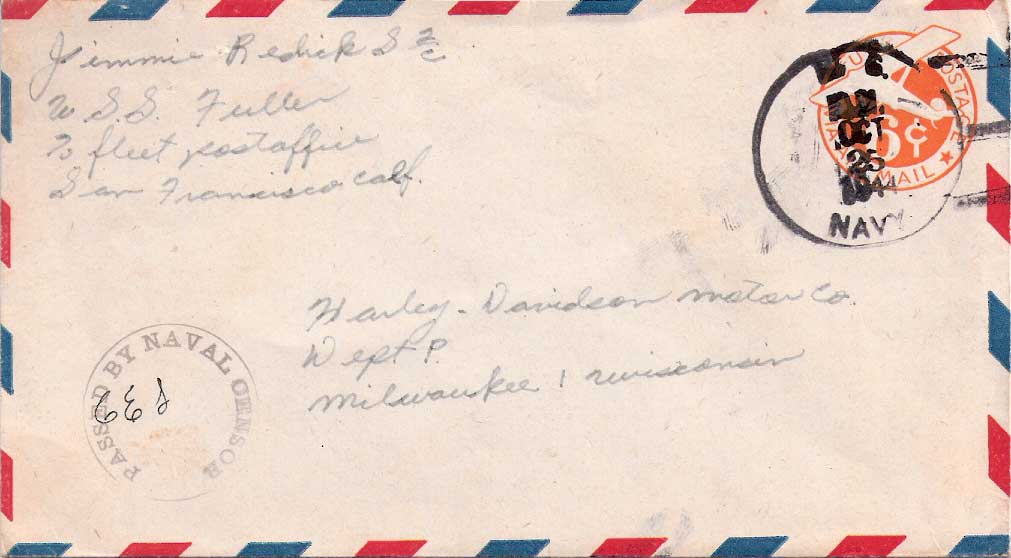 Jimmie Redick S 2/c
U.S.S. Fuller
% fleet postoffice
San Francisco Calf.
U. S.
OCT
25
1944
NAVY
POSTAGE
6¢
AIR MAIL
Harley-Davidson motor co.
Dept P.
Milwaukee 1 Wisconsin
PASSED BY NAVAL CENSOR